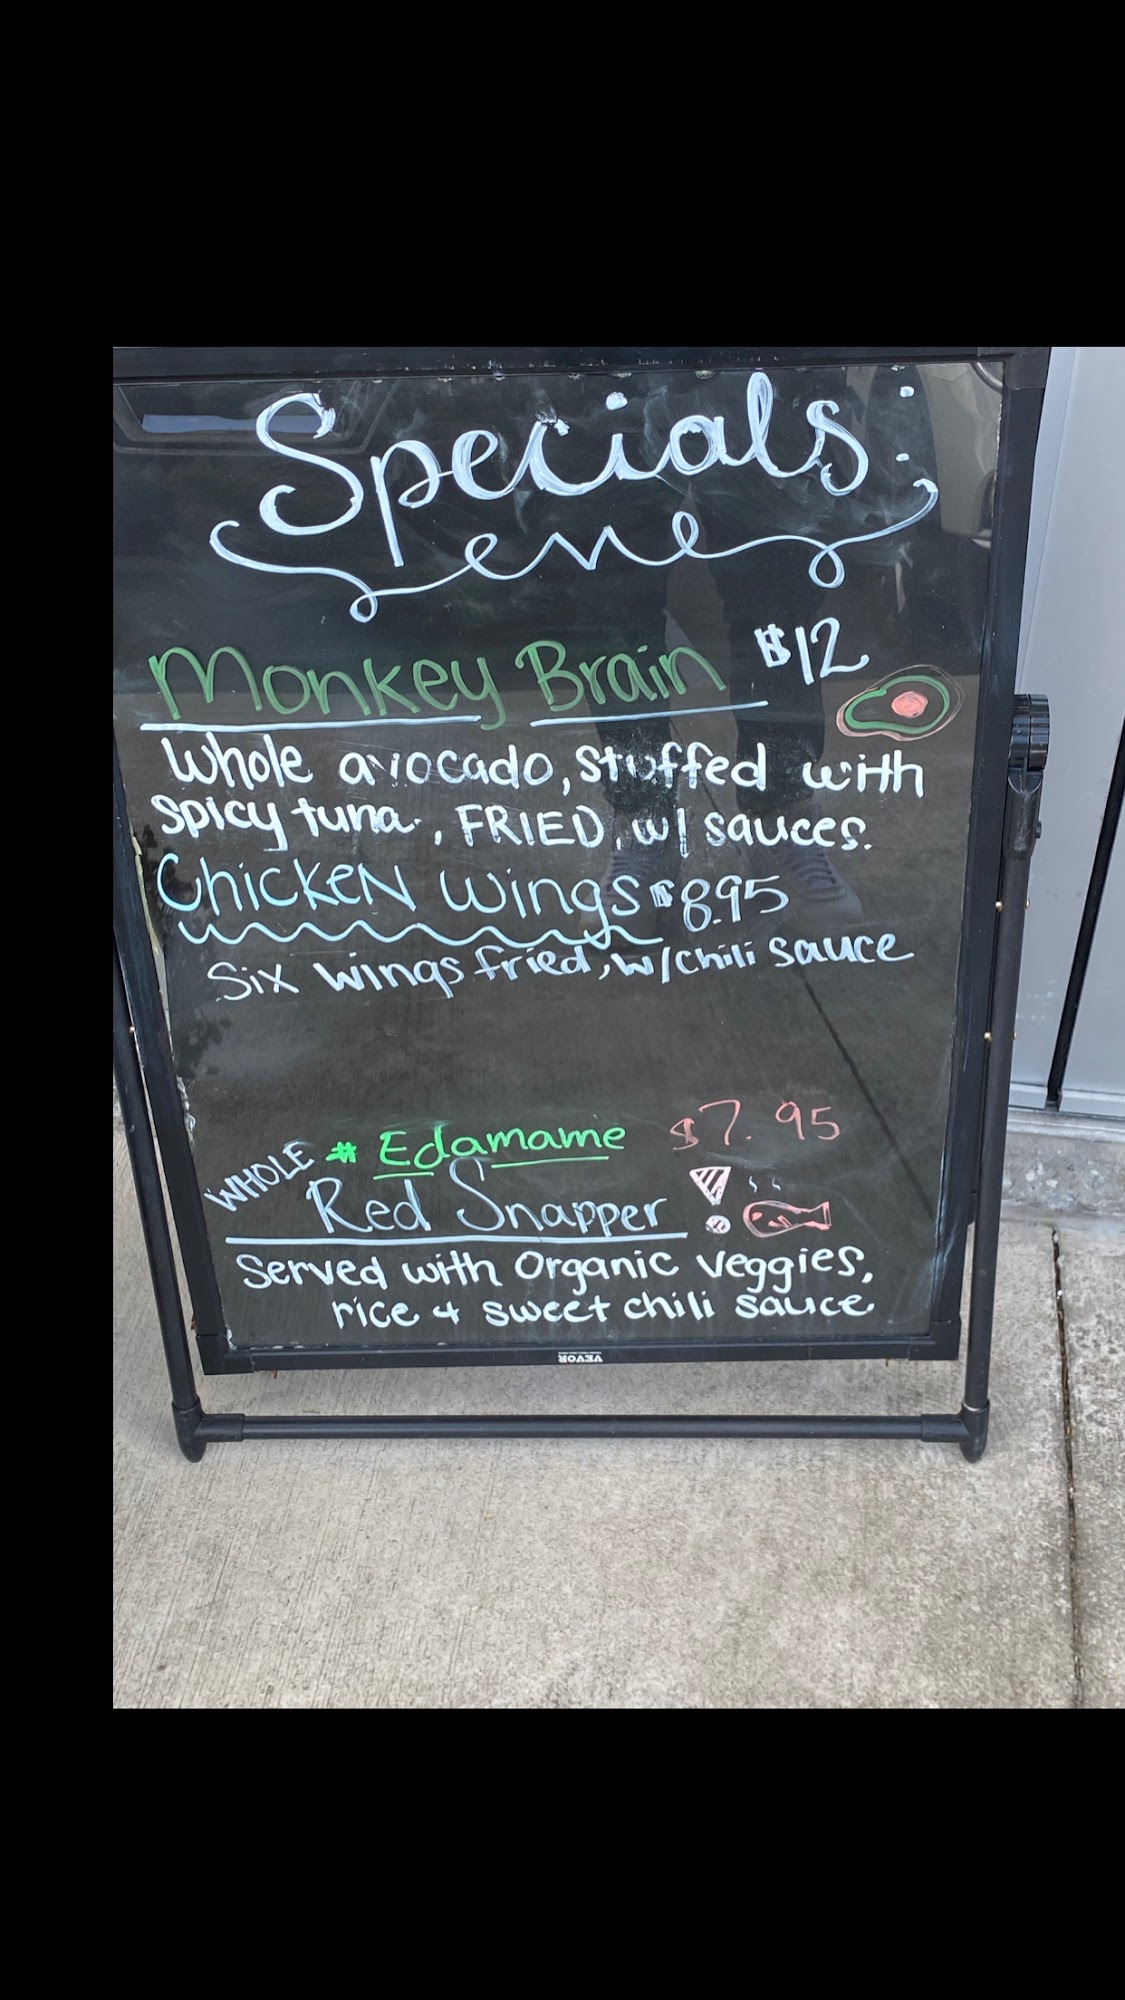 Specials:
Monkey Brain $12
Whole avocado, stuffed with
spicy tuna, FRIED, w/ sauces.
Chicken Wings $8.95
Six wings fried, w/ chili sauce
# Edamame $7.95
WHOLE Red Snapper !
Served with Organic veggies,
rice + sweet chili sauce
VEVOR